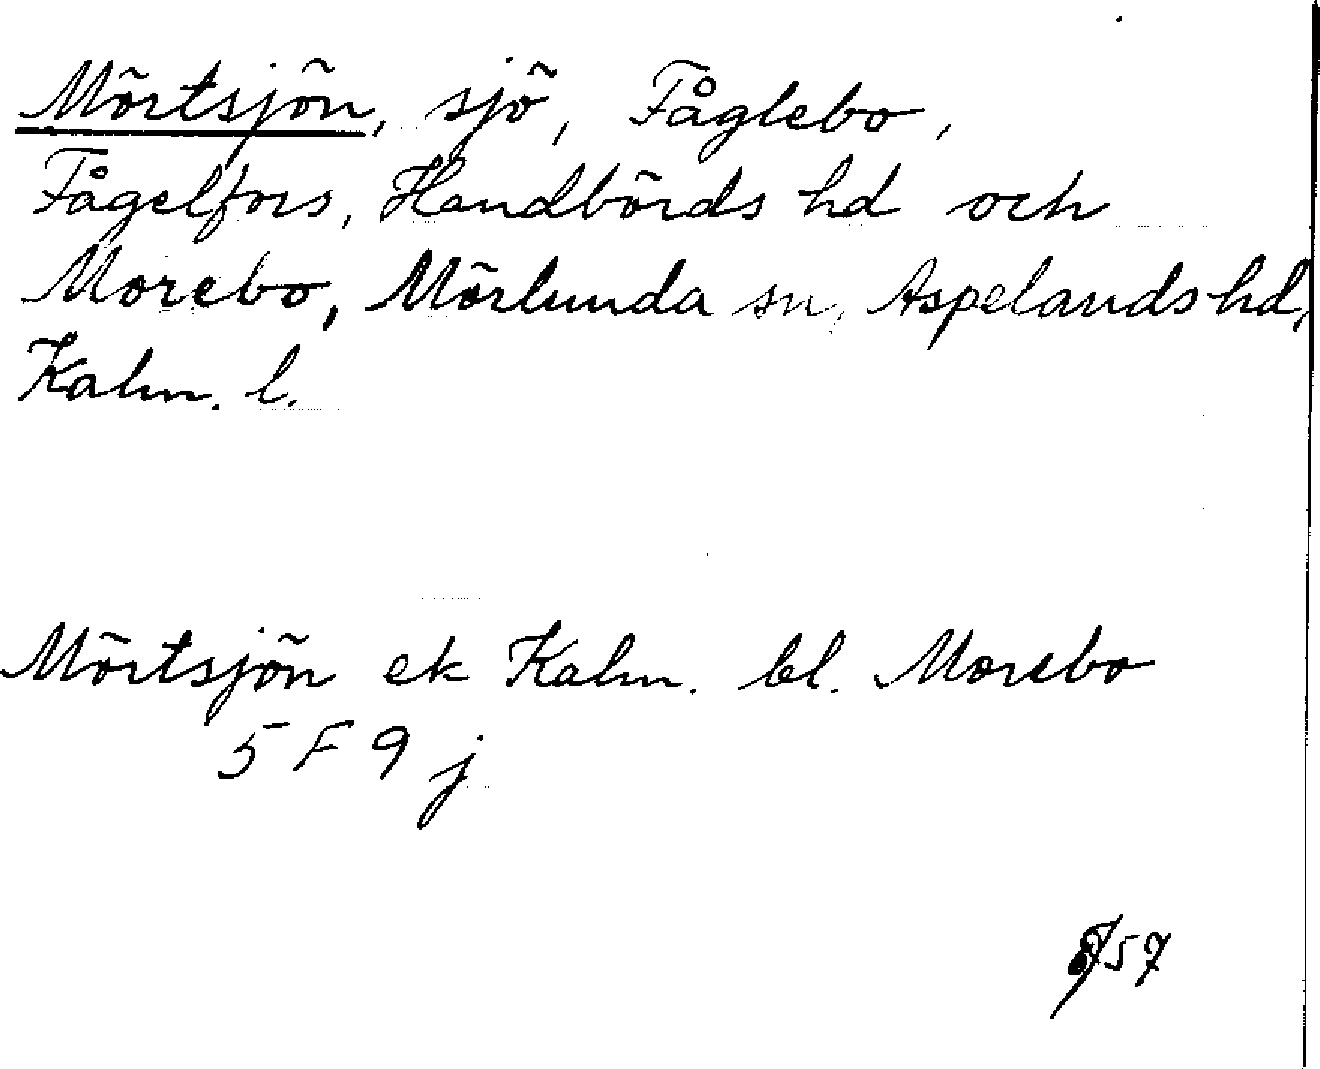 Mörtsjön, sjö, Fåglebo,
Fågelfors, Handbörds hd och
Morebo, Mörlunda sn, Aspelands hd,
Kalm. l.
Mörtsjön ek Kalm. bl. Morebo
5 F 9 j
57